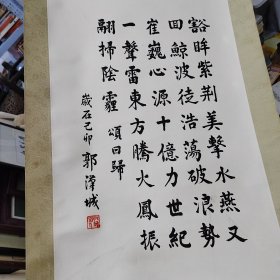 豁眸紫荆美擊水燕又
回鯨波徒浩蕩破浪勢
崔巍心源十億力世紀
一聲雷東方騰火鳳振
翮掃陰霾 頌回歸
歲在己卯 郭漢城